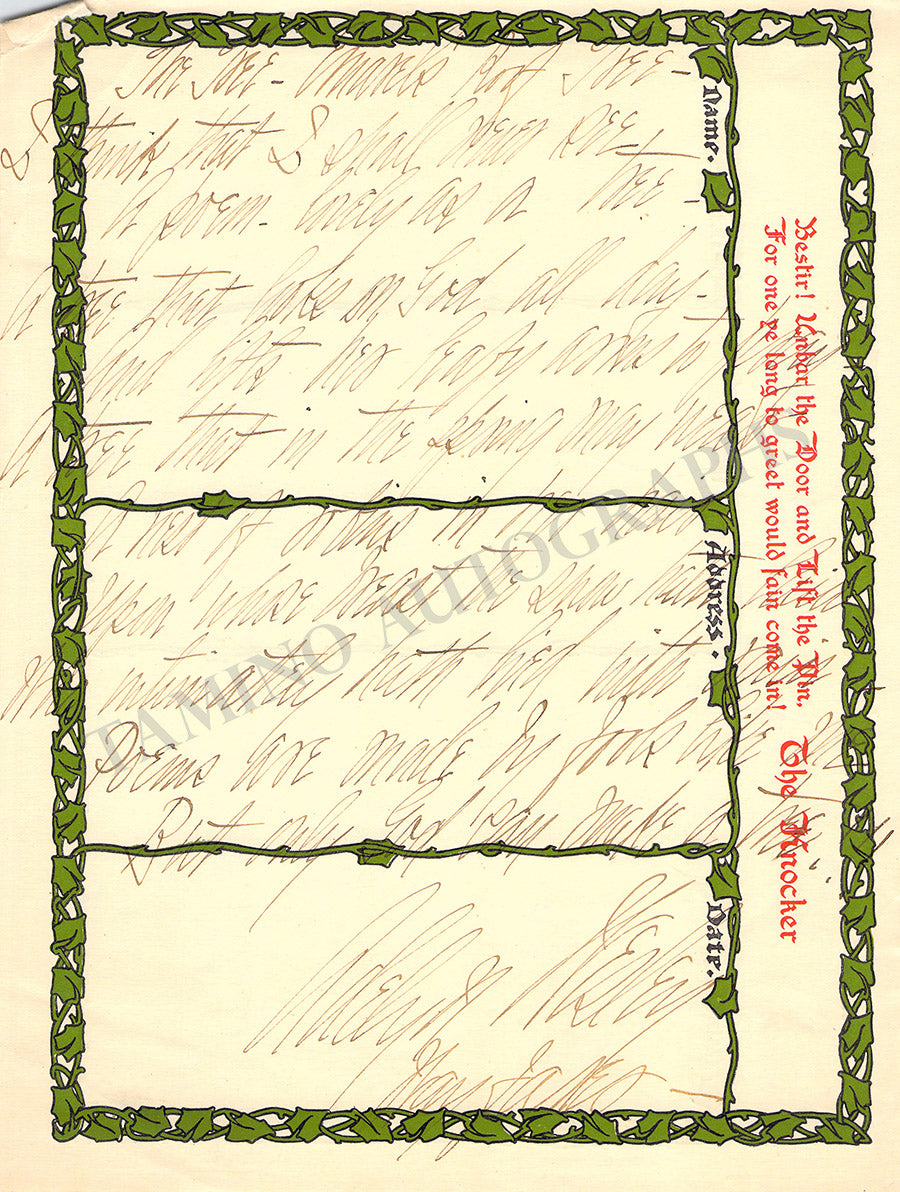 The Tree -
I think that I shall never see
A poem lovely as a tree -
A tree that looks on God all day -
And lifts her leafy arms to pray
A tree that in the Spring may wear
A nest of robins in her hair
Upon whose breast the snow hath lain
Who intimately hath lived with rain
Poems are made by fools like me
But only God can make a tree
Adelyn Wesley
Name.
Address.
Date.
Bestir! Unbar the Door and Lift the Pin,
For one ye long to greet would fain come in!
The Knocker
TAMINO AUTOGRAPHS